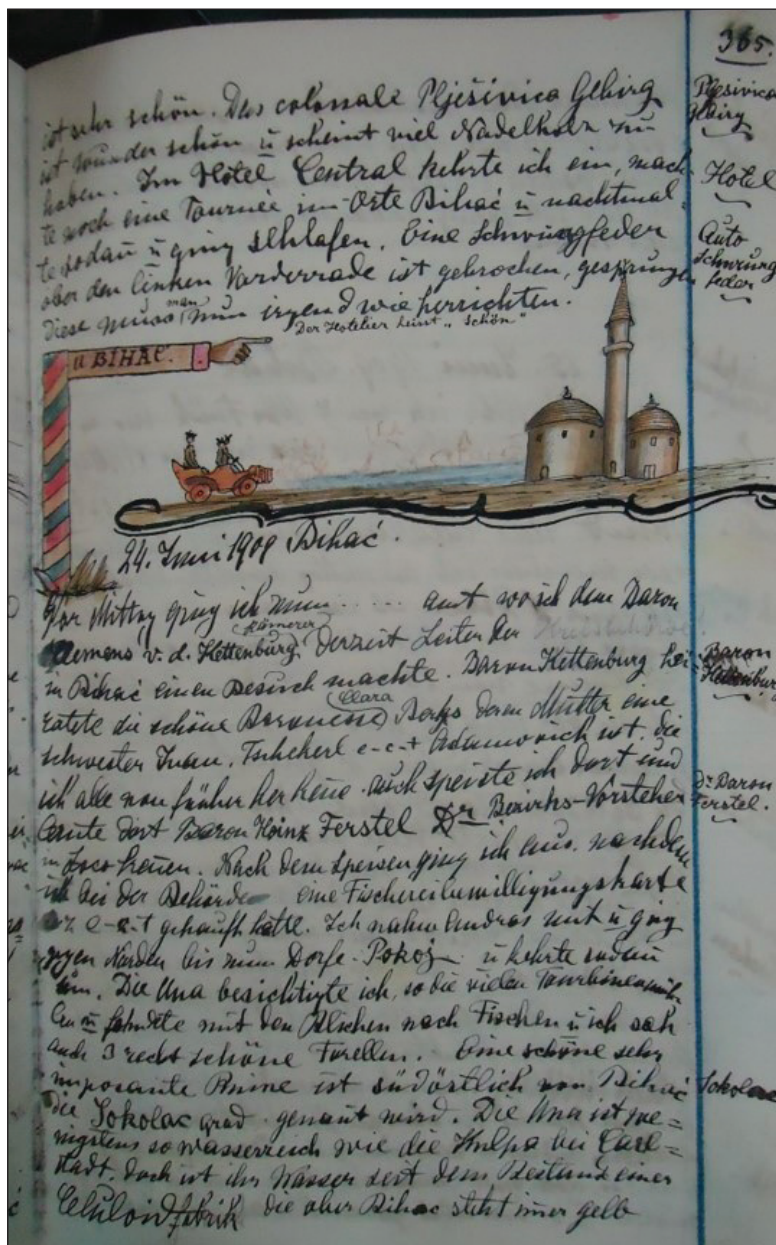 365.
ist sehr schön. Das colossale Plješivica Gebirg
ist wunder schön u scheint viel Nadelholz zu
haben. Im Hôtel Central kehrte ich ein, mach-
te noch eine Tournée im Orte Bihać u nachtmal-
te sodan u ging schlafen. Eine Schwungfeder
ober den linken Vorderrade ist gebrochen, gesprungen
diese muss man nun irgend wie herrichten.
Der Hotelier heist „Schön"
Plješivica
Gebirg
Hotel
Auto
Schwung
feder
n BIHAĆ.
24. Juni 1909 Bihać.
Vor Mittag ging ich zum ..... amt wo ich dem Baron
Clemens v. d. Kettenburg, Kämerer derzeit Leiter der
in Bihać einen Besuch machte. Baron Kettenburg hei-
ratete die schöne Baronesse Clara Berks deren Mutter eine
schwester Ivan, Tscherl e-c-t Adamovich ist. die
ich alle von früher her kene. auch speiste ich dort und
lernte dort Baron Heinz Ferstel Dr Bezirks-Vorsteher
in Loco kenen. Nach dem speisen ging ich aus. nachdem
ich bei der Behörde eine Fischereibewilligungskarte
e-c-t gekauft hatte. Ich nahm Andras mit u ging
gegen Norden bis zum Dorfe Pokoj u kehrte sodan
um. Die Una besichtigte ich, so die vielen Tourbinenmüh-
len u fahndete mit den Blicken nach Fischen u ich sah
auch 3 recht schöne Forellen. Eine schöne sehr
imposante Ruine ist südöstlich von Bihać
die Sokolac grad genant wird. Die Una ist we-
nigstens so wasserreich wie die Kulpa bei Carl-
stadt, doch ist ihr Wasser seit dem Bestand einer
Celuloidfabrik die ober Bihać steht imer gelb
Baron
Kettenburg
Dr Baron
Ferstel.
Sokolac